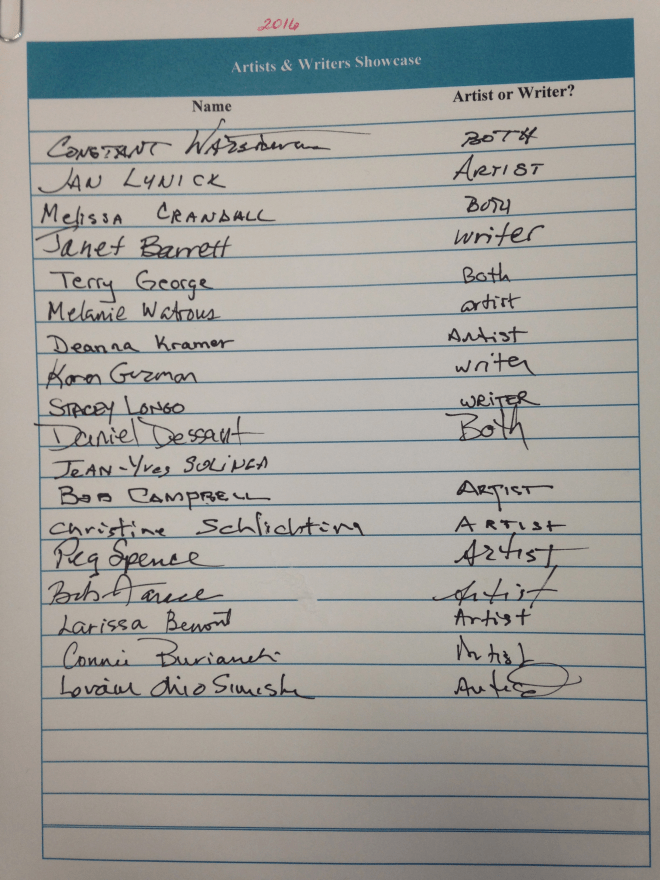 2016
Artists & Writers Showcase
Name Artist or Writer?
CONSTANT BOTH
JAN LYNICK ARTIST
Melissa CRANDALL BOTH
Janet Barrett writer
Terry George Both
Melanie Watrous artist
Deanna Kramer Artist
Karen Guzman writer
STACEY LONGO WRITER
Daniel Dessant Both
JEAN-Yves SOLINGA
BOB CAMPBELL ARTIST
Christine Schlichting ARTIST
Peg Spence Artist
Bob Artist
Larissa Artist
Connie Artist
Ohio Artist